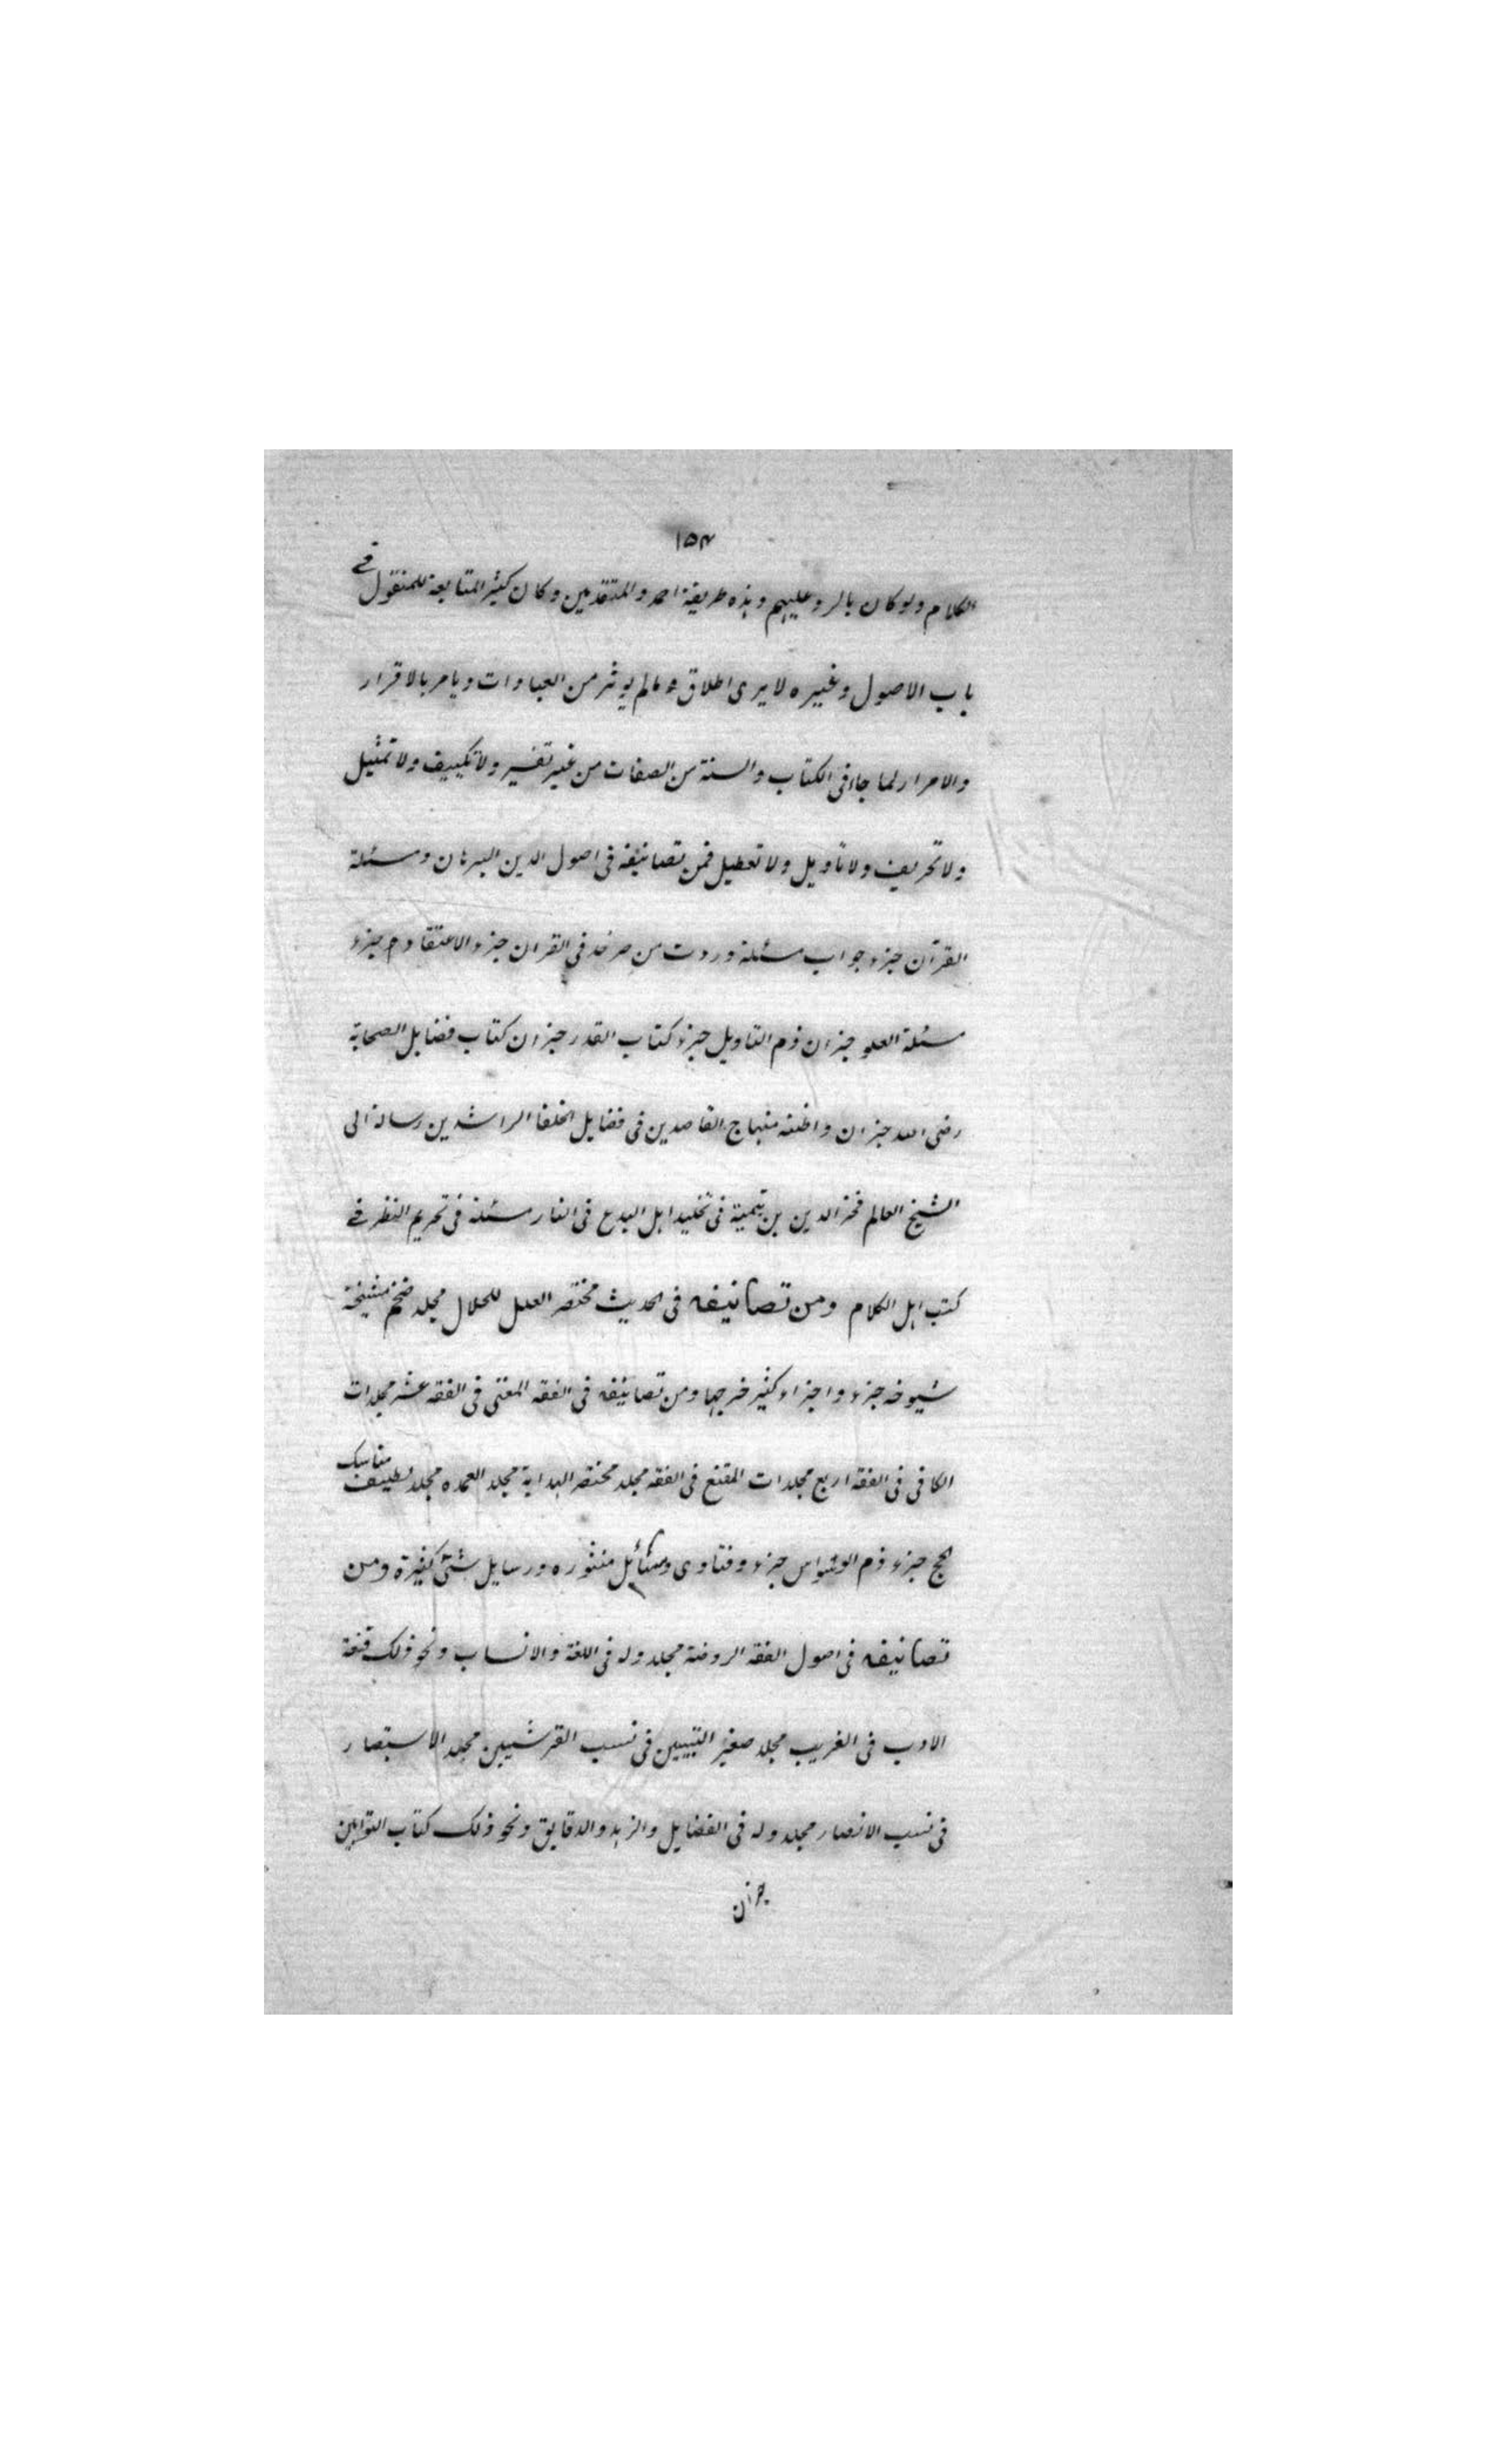 ١٥٣
الكلام ولو كان بالرد عليهم وهذه طريقة احمد والمتقدمين وكان كثير المتابعة للمنقول في
باب الاصول وغيره لا يرى اطلاق مالم يوثر من العبادات ويامر بالاقرار
والامرار لما جاء في الكتاب والسنة من الصفات من غير تفسير ولا تكييف ولا تمثيل
ولا تحريف ولا تاويل ولا تعطيل فمن تصانيفه في اصول الدين البرهان ومسئلة
القرآن جزء جواب مسئلة وردت من صرخد في القران جزء الاعتقاد جزء
مسئلة العلو جزان ذم التاويل جزء كتاب القدر جزان كتاب فضايل الصحابة
رضى الله جزان واظنه منهاج القاصدين في فضايل الخلفا الراشدين رسالة الى
الشيخ العالم فخر الدين بن تيمية في تخليد اهل البدع في النار مسئلة في تحريم النظر في
كتب اهل الكلام ومن تصانيفه في الحديث مختصر العلل للخلال مجلد ضخم مشيخة
شيوخه جزء واجزاء كثير خرجها ومن تصانيفه في الفقه المغنى في الفقه عشر مجلدات
الكافي في الفقه اربع مجلدات المقنع في الفقه مجلد مختصر الهداية مجلد العمده مجلد لطيف مناسك
الحج جزء ذم الوسواس جزء وفتاوى ومسائل منثوره ورسايل شتى كثيرة ومن
تصانيفه في اصول الفقه الروضة مجلد وله في اللغة والانساب ونحو ذلك قنعة
الادب في الغريب مجلد صغير التبيين في نسب القرشيين مجلد الاستبصار
في نسب الانصار مجلد وله في الفضايل والزهد والدقايق ونحو ذلك كتاب التوابين
جزان